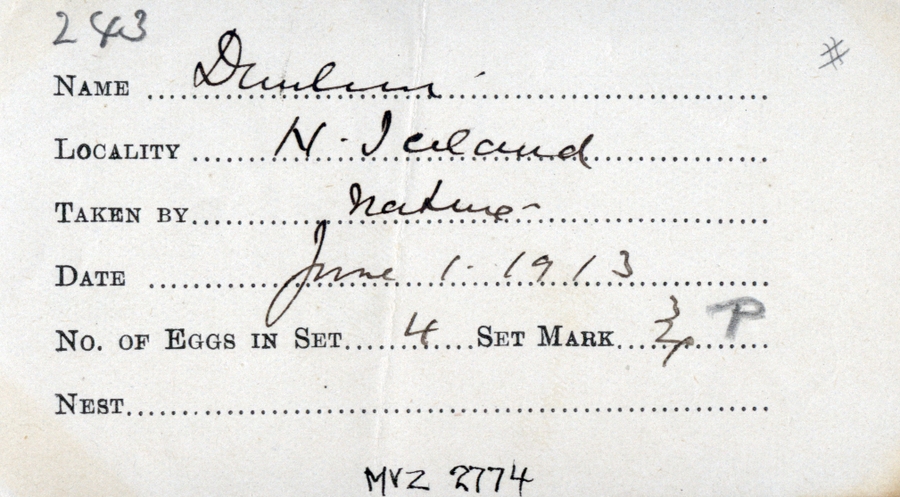 243
#
NAME Dunlin
LOCALITY N. Iceland
TAKEN BY Natives
DATE June 1. 1913
NO. OF EGGS IN SET 4 SET MARK 3/4 P
NEST
MVZ 2774